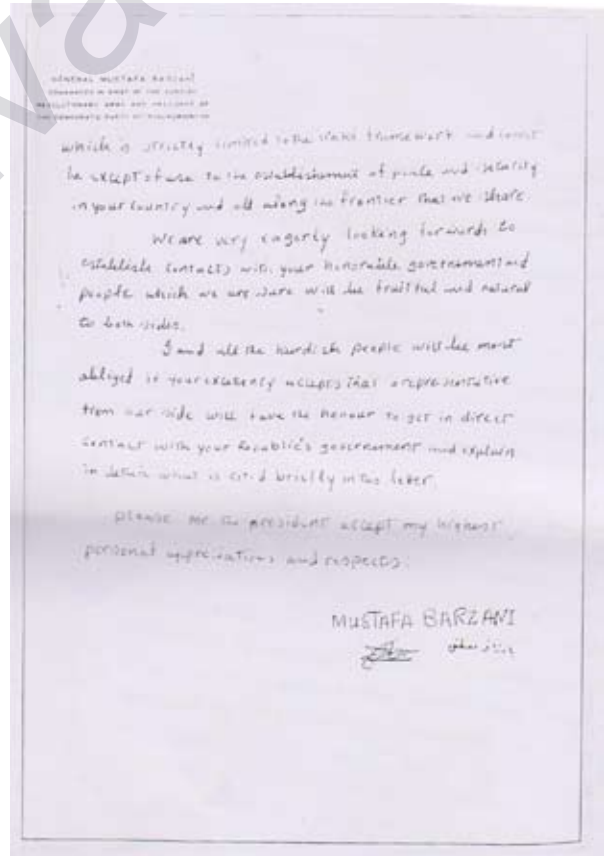 GENERAL MUSTAFA BARZANI
COMMANDER IN CHIEF OF THE KURDISH
REVOLUTIONARY ARMY AND PRESIDENT OF
THE DEMOCRATIC PARTY OF
which is strictly limited to the state framework and
be except of use to the establishment of peace and security
in your country and all along the frontier that we share
We are very eagerly looking forwards to
establish contacts with your honorable governement and
people which we are sure will be fruitful and natural
to both sides.
I and all the kurdish people will be most
obliged if your excellency accepts that a representative
from our side will have the honour to get in direct
contact with your Republic's governement and explain
in detail what is cited briefly in this letter.
please mr the president accept my highest
personal appreciations and respects.
MUSTAFA BARZANI